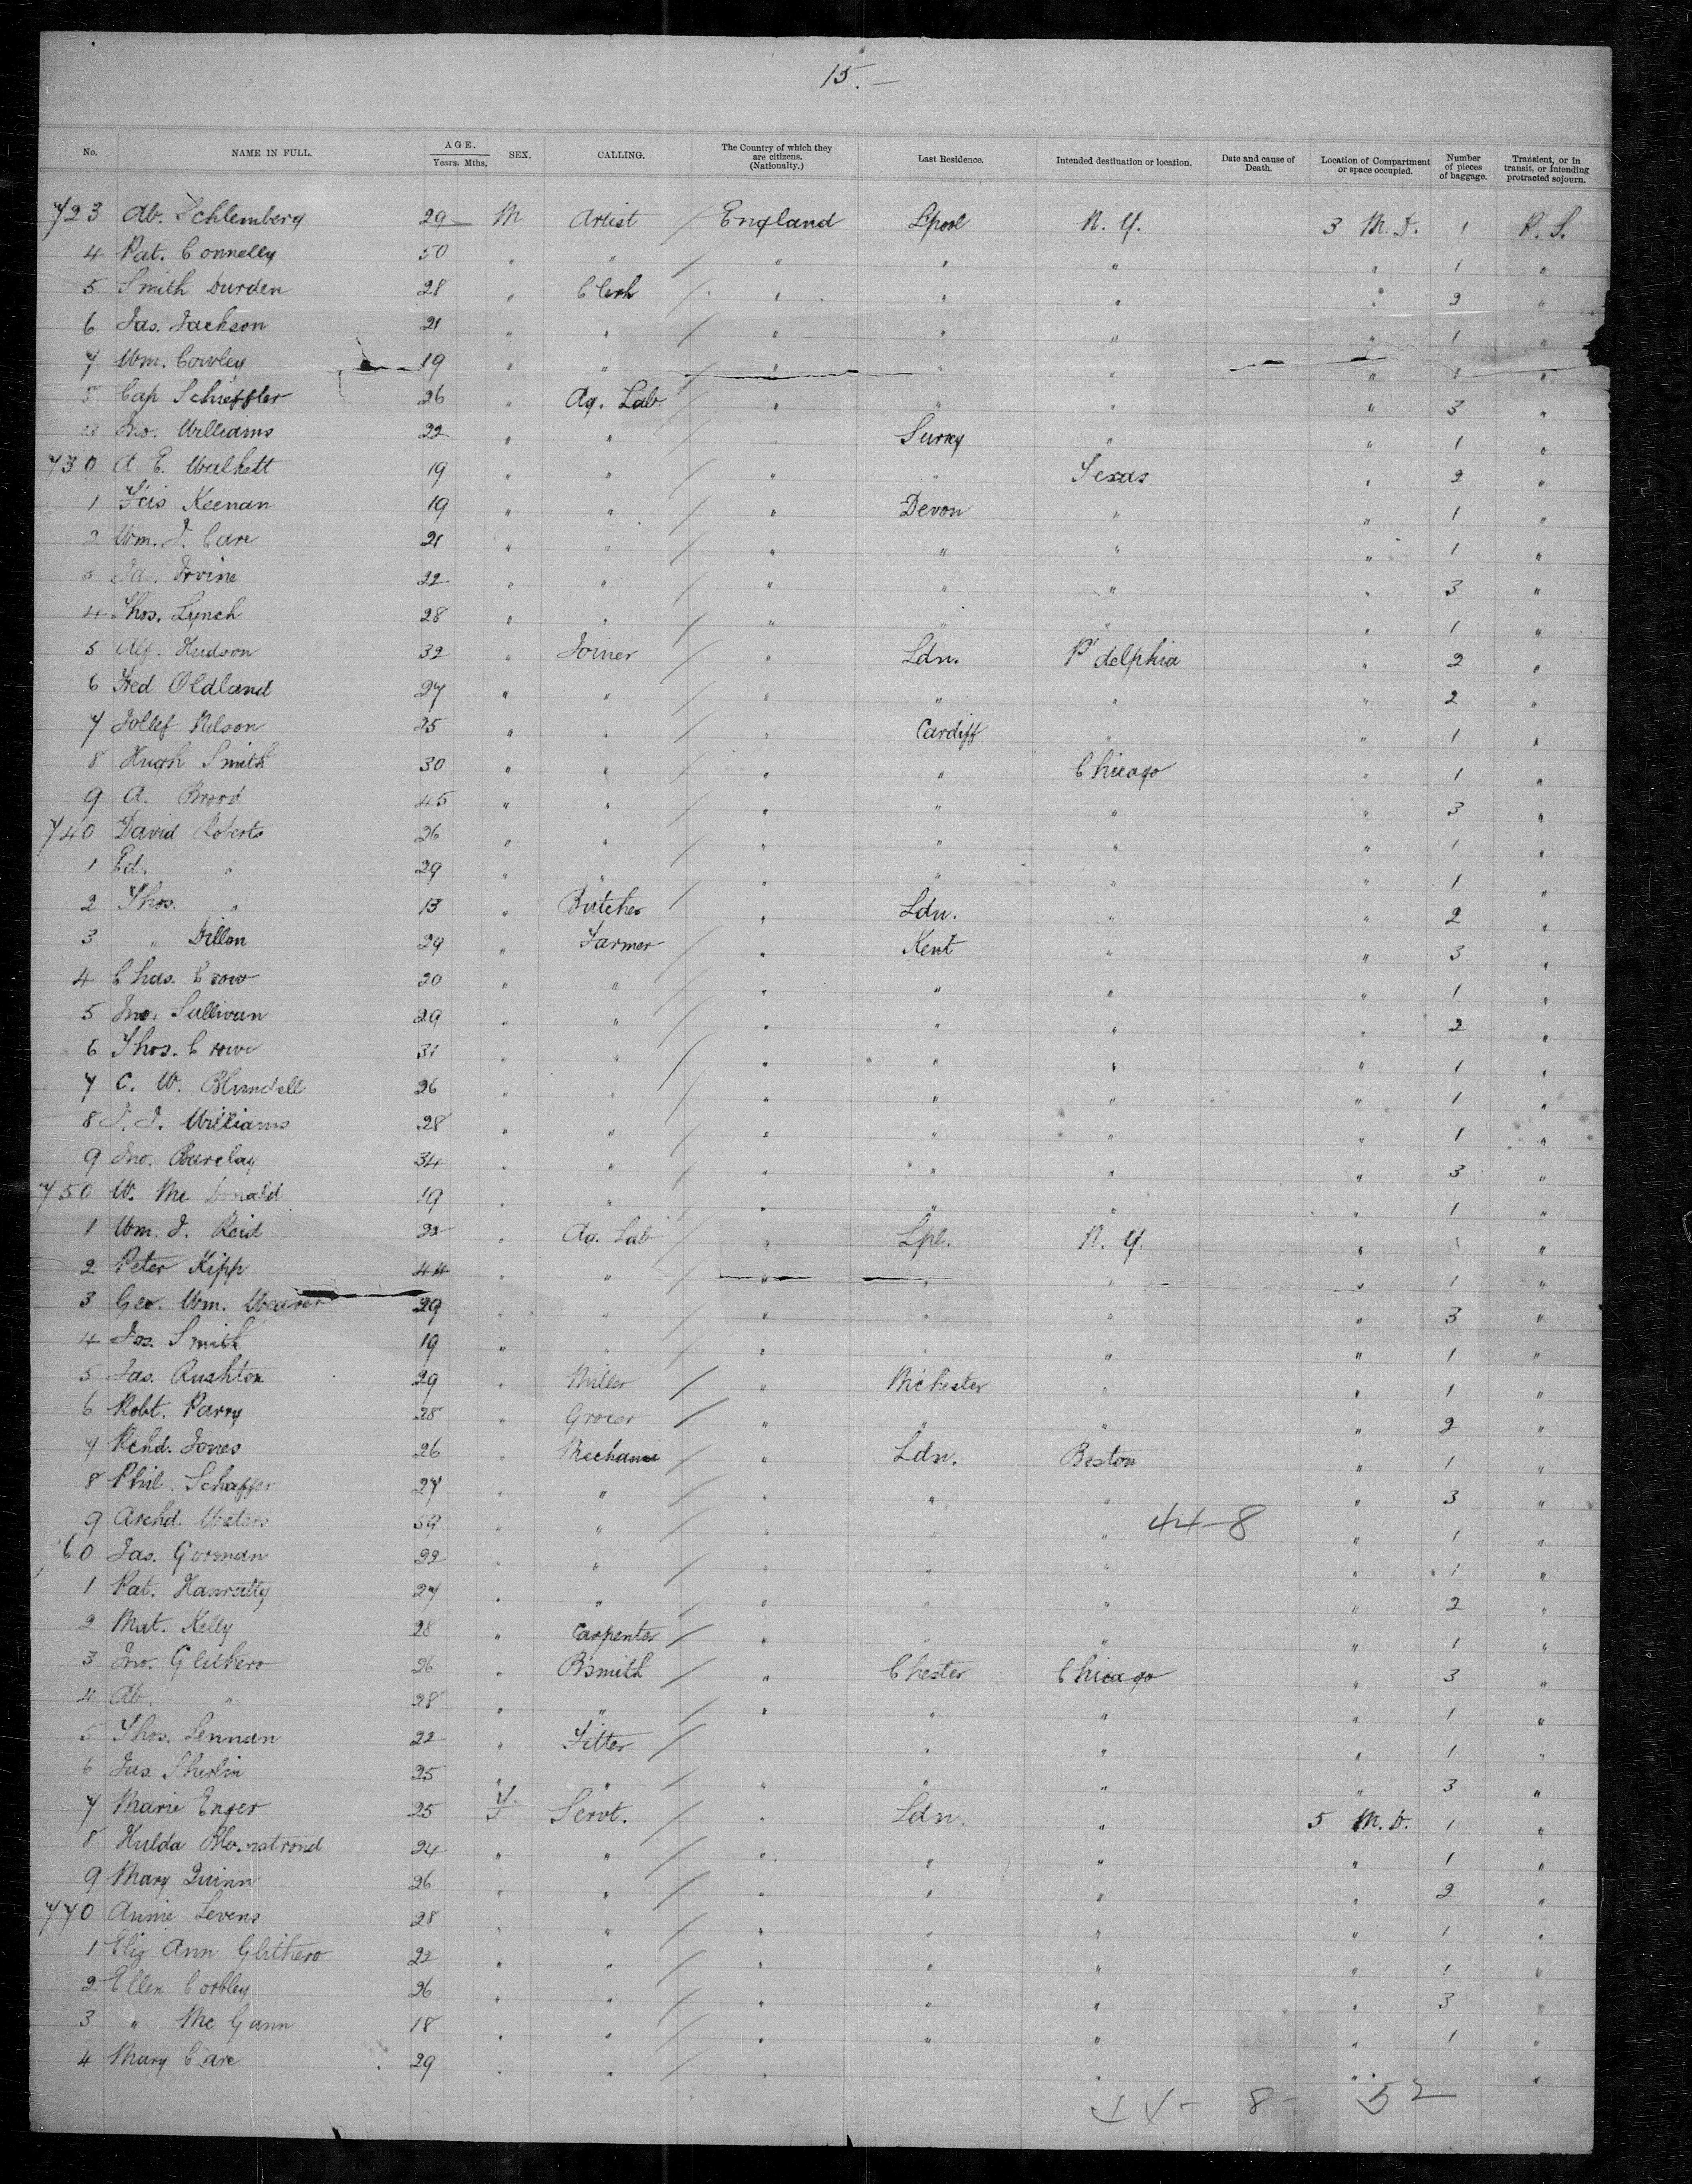 15.—
No. NAME IN FULL. AGE. Years. Mths. SEX. CALLING. The Country of which they are citizens. (Nationalty.) Last Residence. Intended destination or location. Date and cause of Death. Location of Compartment or space occupied. Number of pieces of baggage. Transient, or in transit, or intending protracted sojourn.
723 Ab. Schlemberg 29 M Artist / England Lpool N. Y. 3 M. D. 1 P. S.
4 Pat. Connelly 50 " " / " " " " 1 "
5 Smith Durden 28 " Clerk / " " " " 2 "
6 Jas. Jackson 21 " " / " " " " 1 "
7 Wm. Cowley 19 " " / " " " " 1 "
8 Cap Schieffler 26 " Ag. Lab. / " " " " 3 "
Jno. Williams 22 " " / Surrey " " 1 "
730 A E. 19 " " / " " Texas " 2 "
1 Keenan 19 " " / " Devon " " 1 "
2 Wm. J. Care 21 " " / " " " " 1 "
3 Irvine 22 " " / " " " " 3 "
4 Thos. Lynch 28 " " / " " " " 1 "
5 Alf. Hudson 32 " Joiner / " Ldn. P'delphia " 2 "
6 Fred Oldland 27 " " / " " " " 2 "
7 Nilson 25 " " / " Cardiff " " 1 "
8 Hugh Smith 30 " " / " " Chicago " 1 "
9 A. Brood 45 " " / " " " " 3 "
740 David Roberts 26 " " / " " " " 1 "
1 Ed. " 29 " " / " " " " 1 "
2 Thos. " 13 " Butcher / " Ldn. " " 2 "
3 " Dillon 29 " Farmer / " Kent " " 3 "
4 Chas. Crow 20 " " / " " " " 1 "
5 Jno. Sullivan 29 " " / " " " " 2 "
6 Thos. Crowe 31 " " / " " " " 1 "
7 C. W. Blundell 26 " " / " " " " 1 "
8 J. J. Williams 28 " " / " " " " 1 "
9 Jno. Barclay 34 " " / " " " " 3 "
750 W. Mc Donald 19 " " / " " " " 1 "
1 Wm. J. Reid 22 " Ag. Lab / " Lpl. N. Y. " "
2 Peter Kipp 44 " " / " " " " 1 "
3 Geo. Wm. Weaver 29 " " / " " " " 3 "
4 Jos. Smith 19 " " / " " " " 1 "
5 Jas. Rushton 29 " Miller / " Mchester " " 1 "
6 Robt. Parry 28 " Grocer / " " " " 2 "
7 Rchd. Jones 26 " Mechanic / " Ldn. Boston " 1 "
8 Phil. Schaffer 27 " " / " " " " 3 "
9 Archd. Waters 59 " " / " " " 44-8 " 1 "
60 Jas. Gorman 22 " " / " " " " 1 "
1 Pat. Hanratty 27 " " / " " " " 2 "
2 Mat. Kelly 28 " Carpenter / " " " " 1 "
3 Jno. Glithero 26 " Bsmith / " Chester Chicago " 3 "
4 Ab. " 28 " " / " " " " 1 "
5 Thos. Lennan 22 " Fitter / " " " 1 "
6 Jas. Sherlin 25 " " / " " " " 3 "
7 Marie Enger 25 F. Servt. / " Ldn. " 5 M. D. 1 "
8 Hulda Blomstrond 24 " " / " " " " 1 "
9 Mary Quinn 26 " " / " " " " 2 "
770 Annie Levens 28 " " / " " " " 1 "
1 Eliz Ann Glithero 22 " " / " " " " 1 "
2 Ellen Corbley 26 " " / " " " " 3 "
3 " Mc Gann 18 " " / " " " " 1 "
4 Mary Care 29 " " / " " " "
44 - 8 - 52